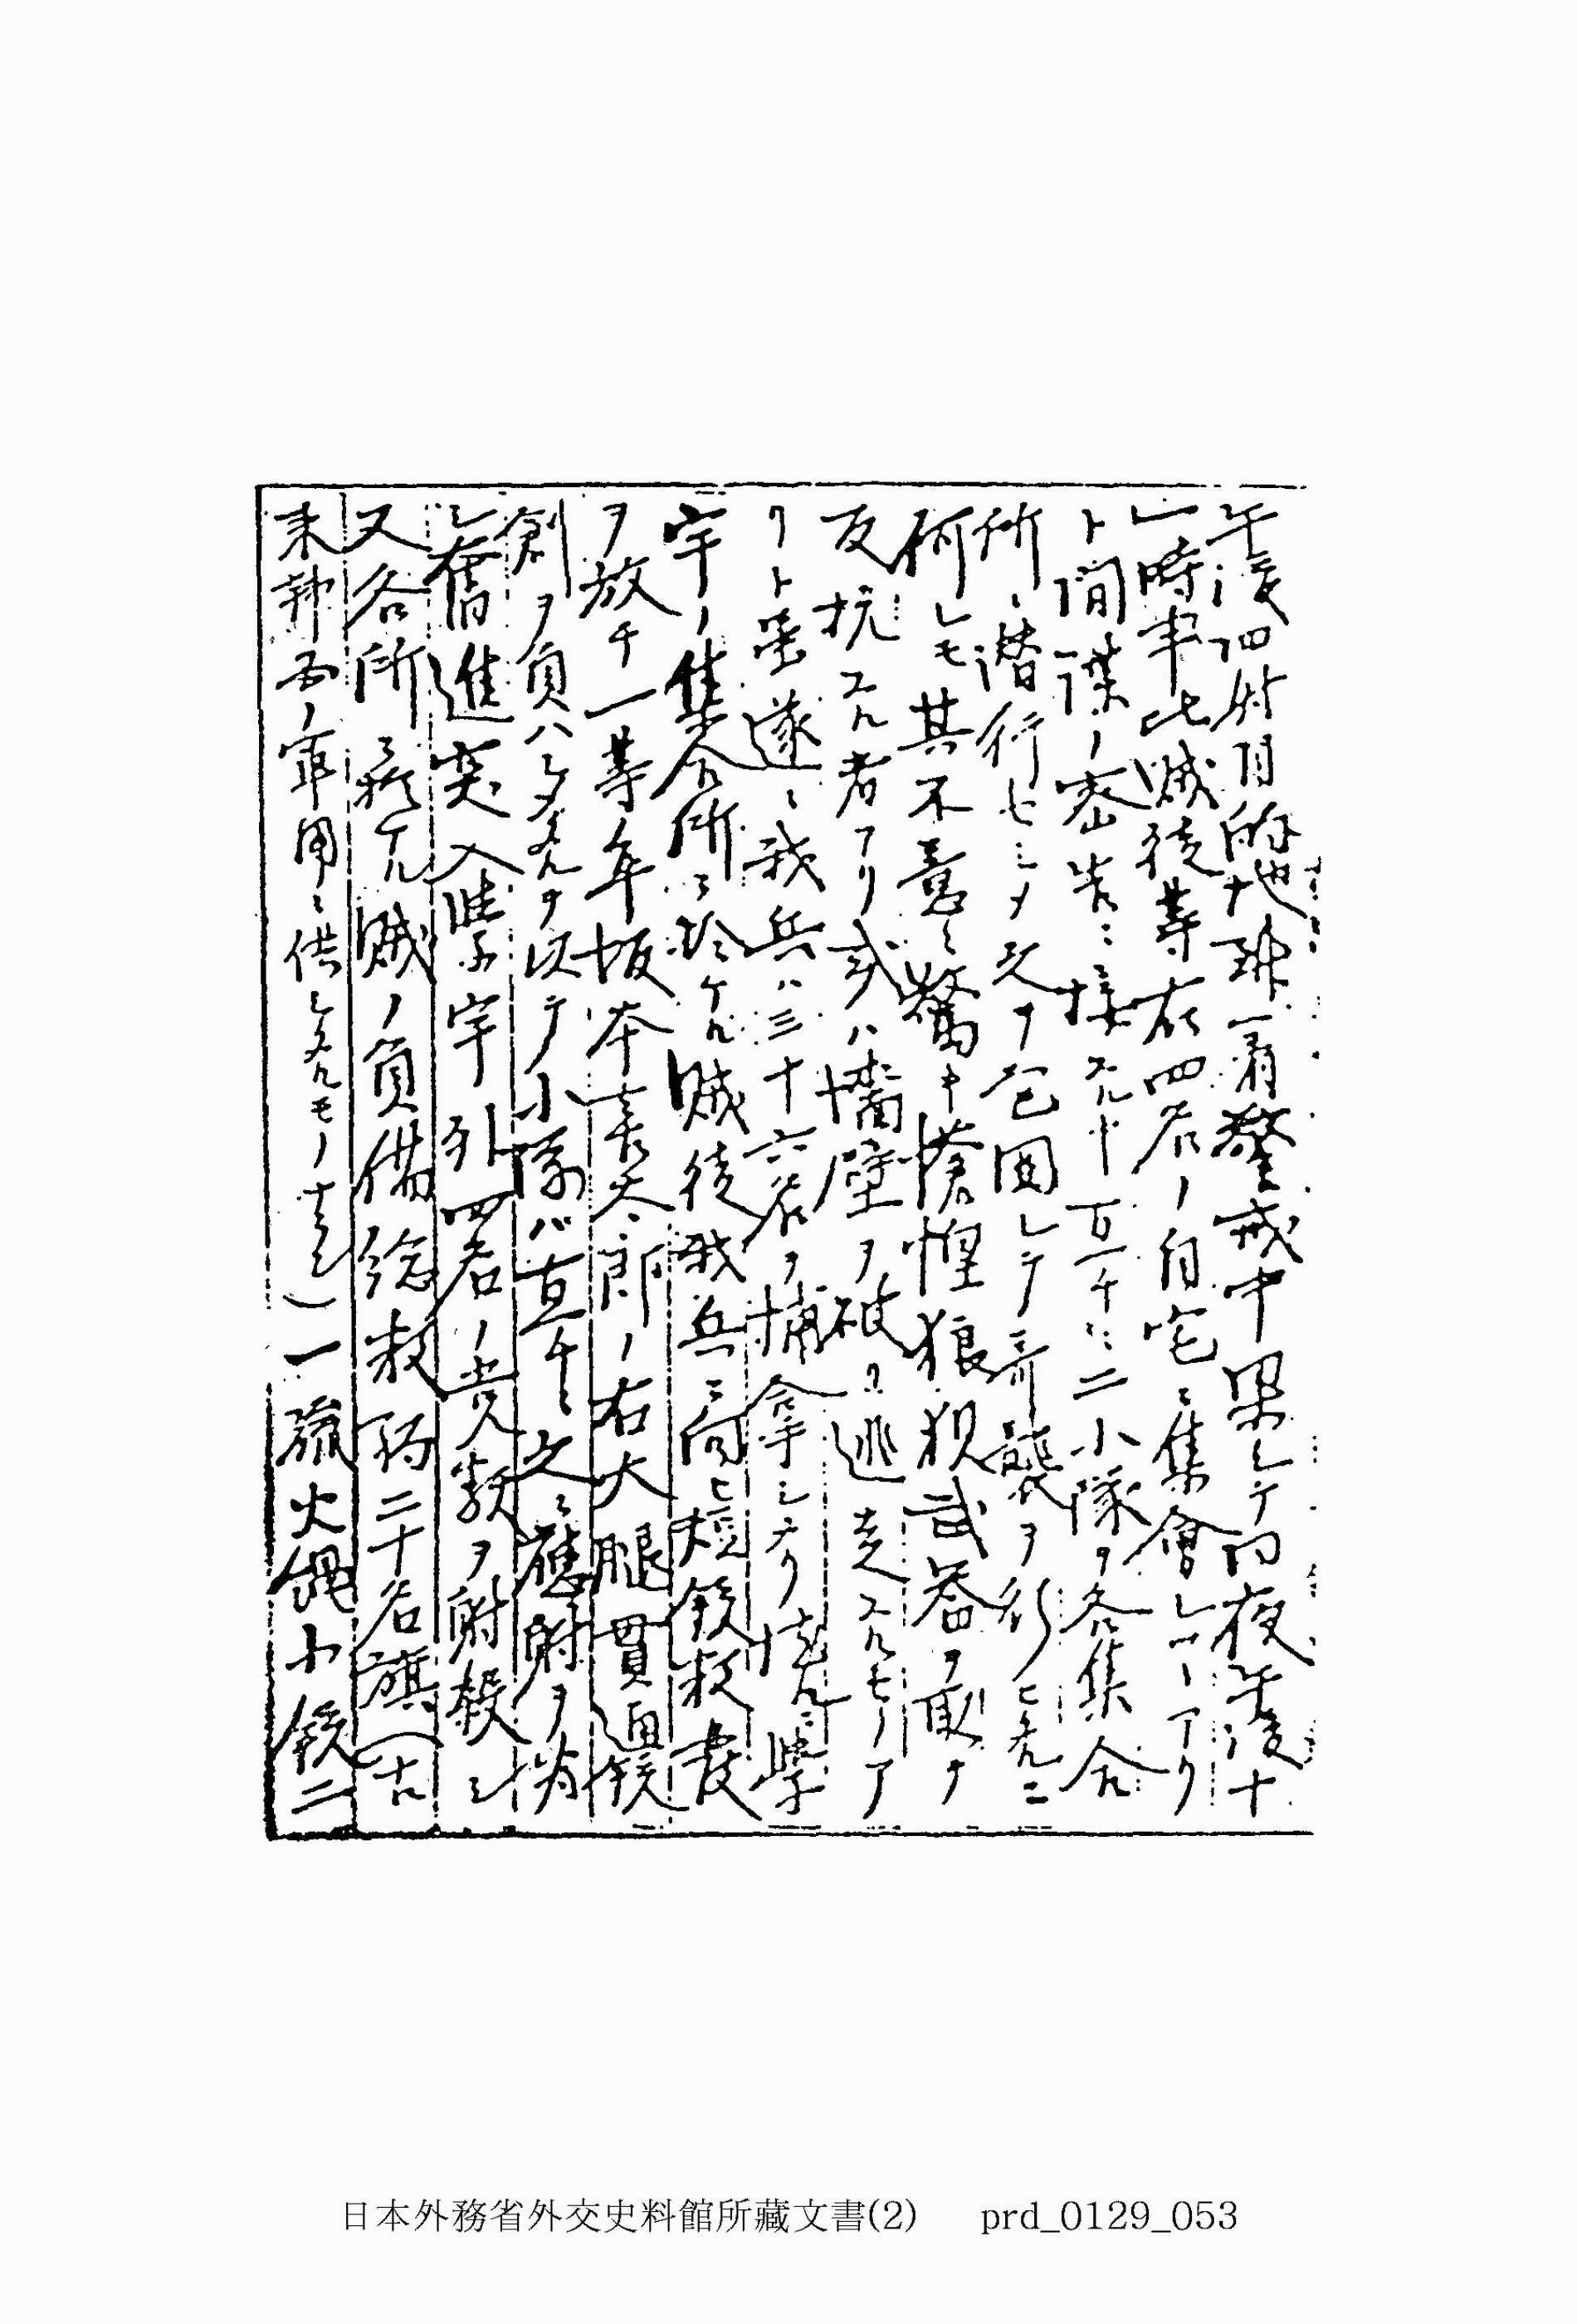 午後四時目的地ナル一層警戒中果シテ同夜午後十
一時半比賊徒等右四名ノ自宅ニ集會シーーアリ
ト間諜ノ密告ニ接スルヤ直チニ二小隊ヲ各集合
所ニ潜行セシメ之ヲ包囲シテ奇襲ヲ行ヒタルニ
何レモ其不意ニ驚キ愴惶狼狽武器ヲ取ナ
反抗スル者アリ或ハ墻壁ヲ破リ逃走スルモノア
リト雖遂ニ我兵ハ三十六名ヲ捕拿シタリ然ルニ學
宇ノ集合所ニ於ケル賊徒我兵ニ向ヒ短銃数発
ヲ放チ一等卒坂本喜太郎ノ右大腿貫通銃
創ヲ負ハシタルヲ以テ小隊ハ直チニ之ニ應射ヲ為
シ奮進突入學宇外四名ノ党類ヲ射殺シ
又各所ニ於ケル賊ノ負傷総数約二十名旗(古
来韓國ノ軍用ニ供シタルモノナラン)一旒火縄小銃二
日本外務省外交史料館所藏文書(2) prd_0129_053